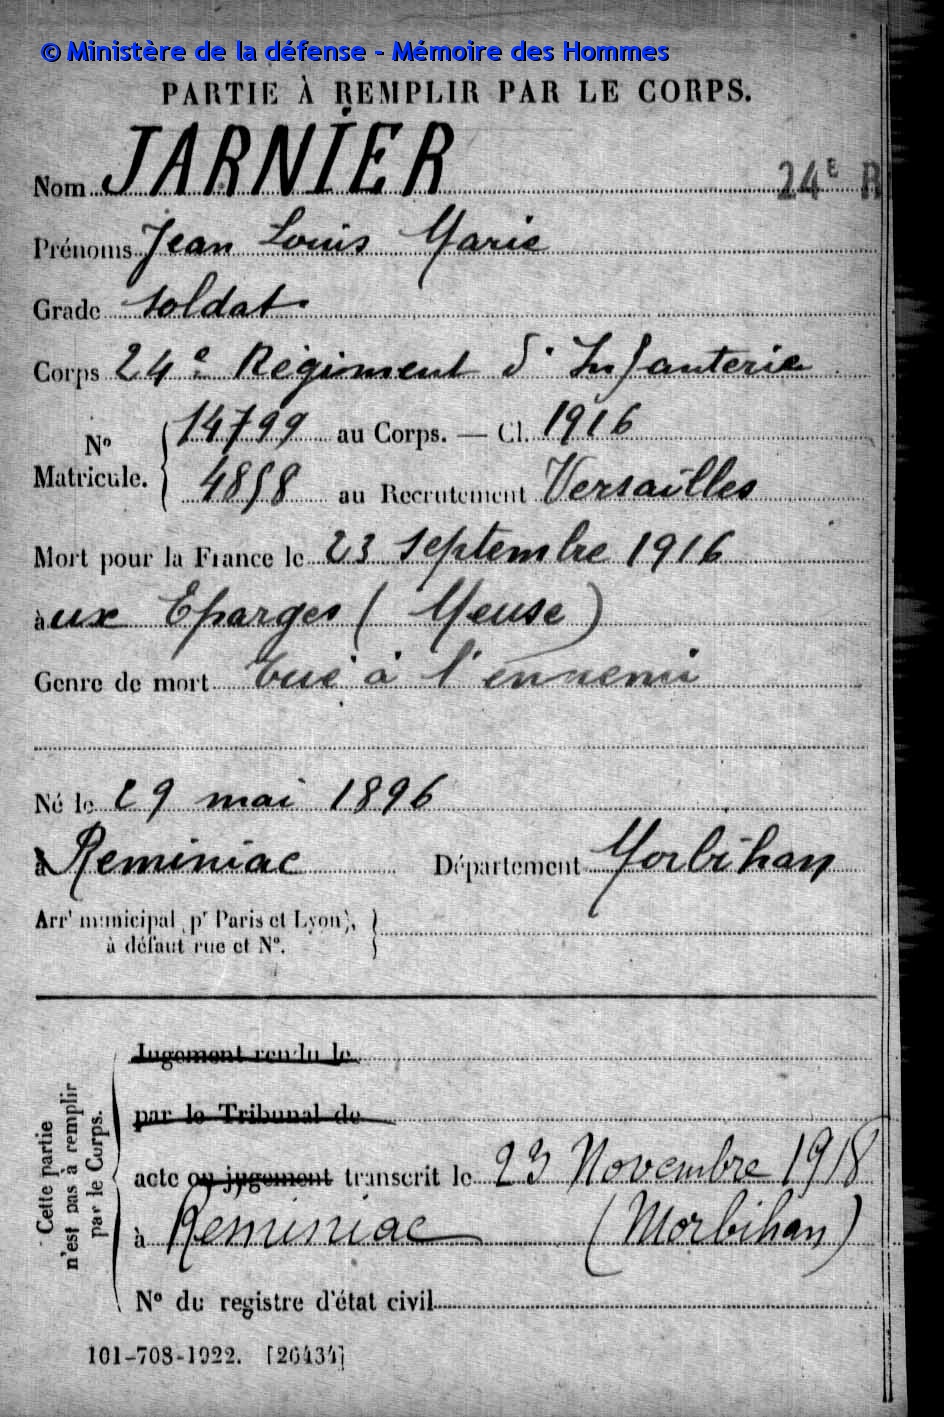 © Ministère de la défense - Mémoire des Hommes
PARTIE À REMPLIR PAR LE CORPS.
Nom JARNIER
24E R
Prénoms Jean Louis Marie
Grade soldat
Corps 24e Régiment d'Infanterie
No Matricule. 14799 au Corps. — Cl. 1916
4858 au Recrutement Versailles
Mort pour la France le 23 septembre 1916
à ux Eparges (Meuse)
Genre de mort Tué à l'ennemi
Né le 29 mai 1896
à Reminiac Département Morbihan
Arrt municipal (pr Paris et Lyon),
à défaut rue et No.
Cette partie
n'est pas à remplir
par le Corps.
Jugement rendu le
par le Tribunal de
acte ou jugement transcrit le 23 Novembre 1918
à Reminiac (Morbihan)
No du registre d'état civil
101-708-1922. [26434]